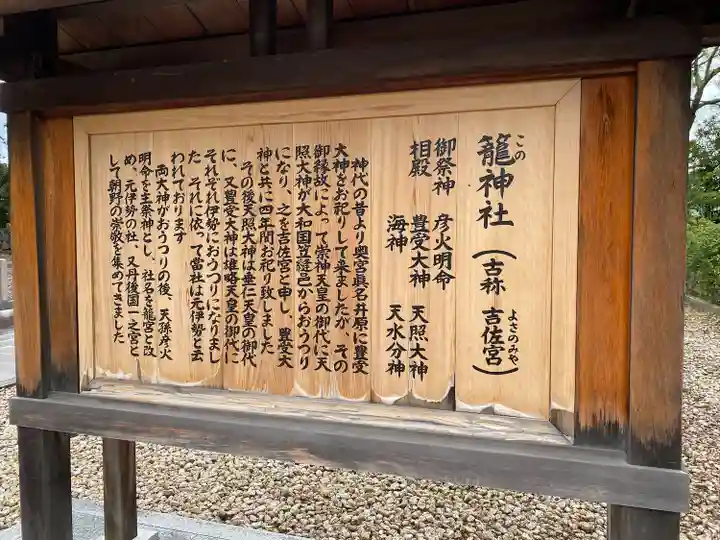 この
籠神社(古称 吉佐宮)
よさのみや
御祭神 彦火明命
相殿 豊受大神 天照大神
海神 天水分神
神代の昔より奥宮眞名井原に豊受
大神をお祀りして来ましたが、その
御縁故によって崇神天皇の御代に天
照大神が大和国笠縫邑からおうつり
になり、之を吉佐宮と申し、豊受大
神と共に四年間お祀り致しました
その後天照大神は垂仁天皇の御代
に、又豊受大神は雄略天皇の御代に
それぞれ伊勢におうつりになりまし
た それに依って當社は元伊勢と云
われております
両大神がおうつりの後、天孫彦火
明命を主祭神とし、社名を籠宮と改
め、元伊勢の社、又丹後国一之宮と
して朝野の崇敬を集めてきました